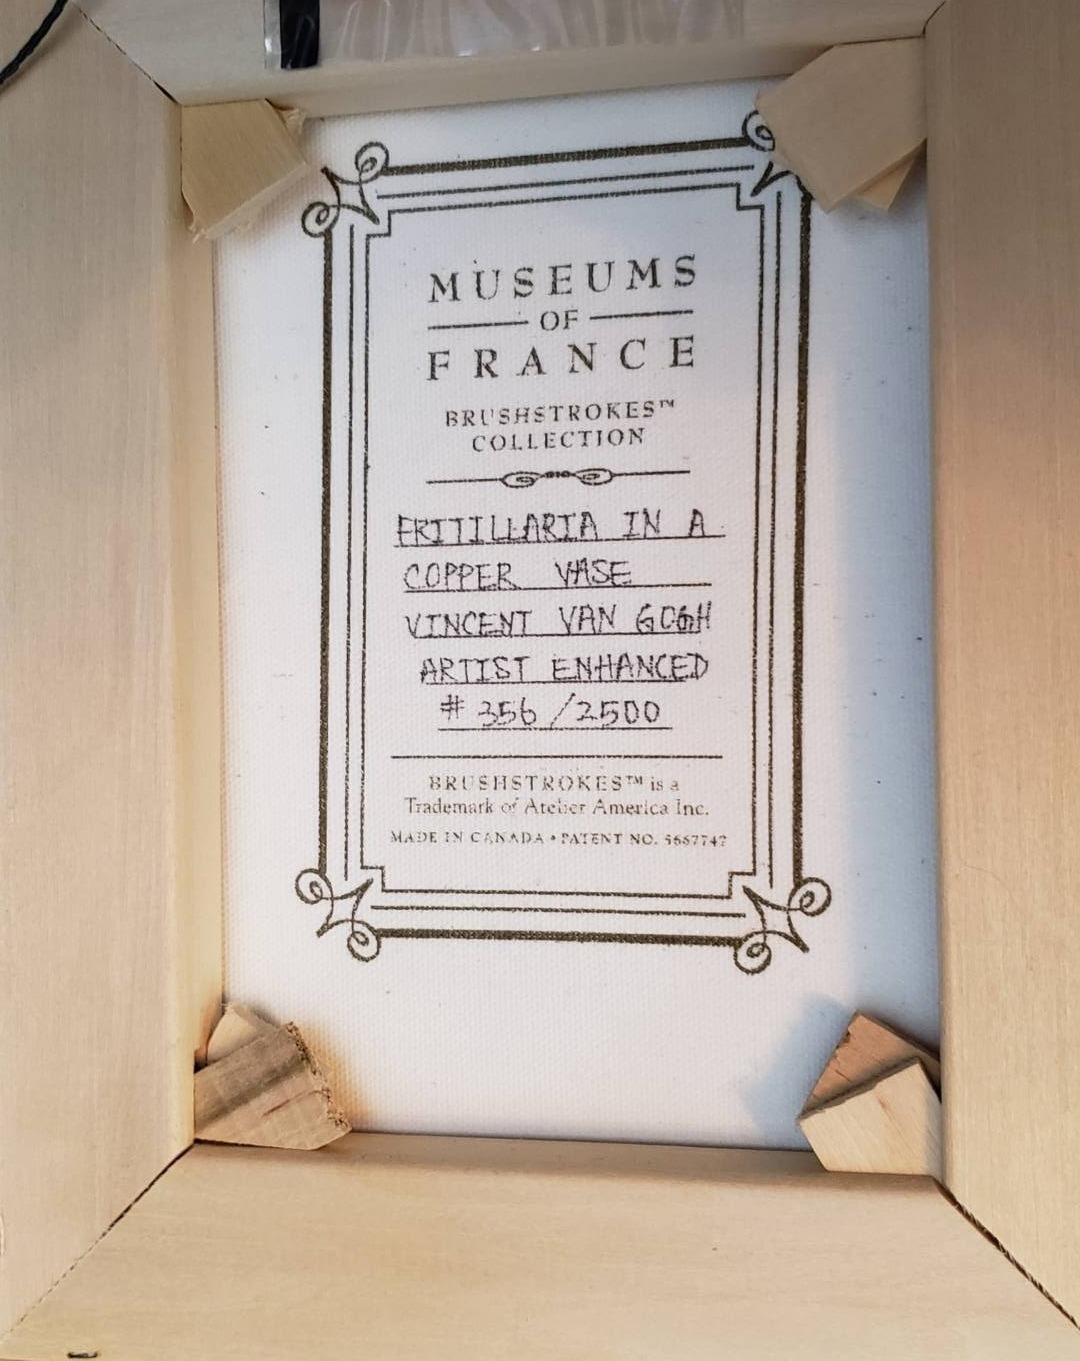 MUSEUMS
OF
FRANCE
BRUSHSTROKES™
COLLECTION
FRITILLARIA IN A
COPPER VASE
VINCENT VAN GOGH
ARTIST ENHANCED
# 356 /2500
BRUSHSTROKES™ is a
Trademark of Atelier America Inc.
MADE IN CANADA • PATENT NO. 5667747